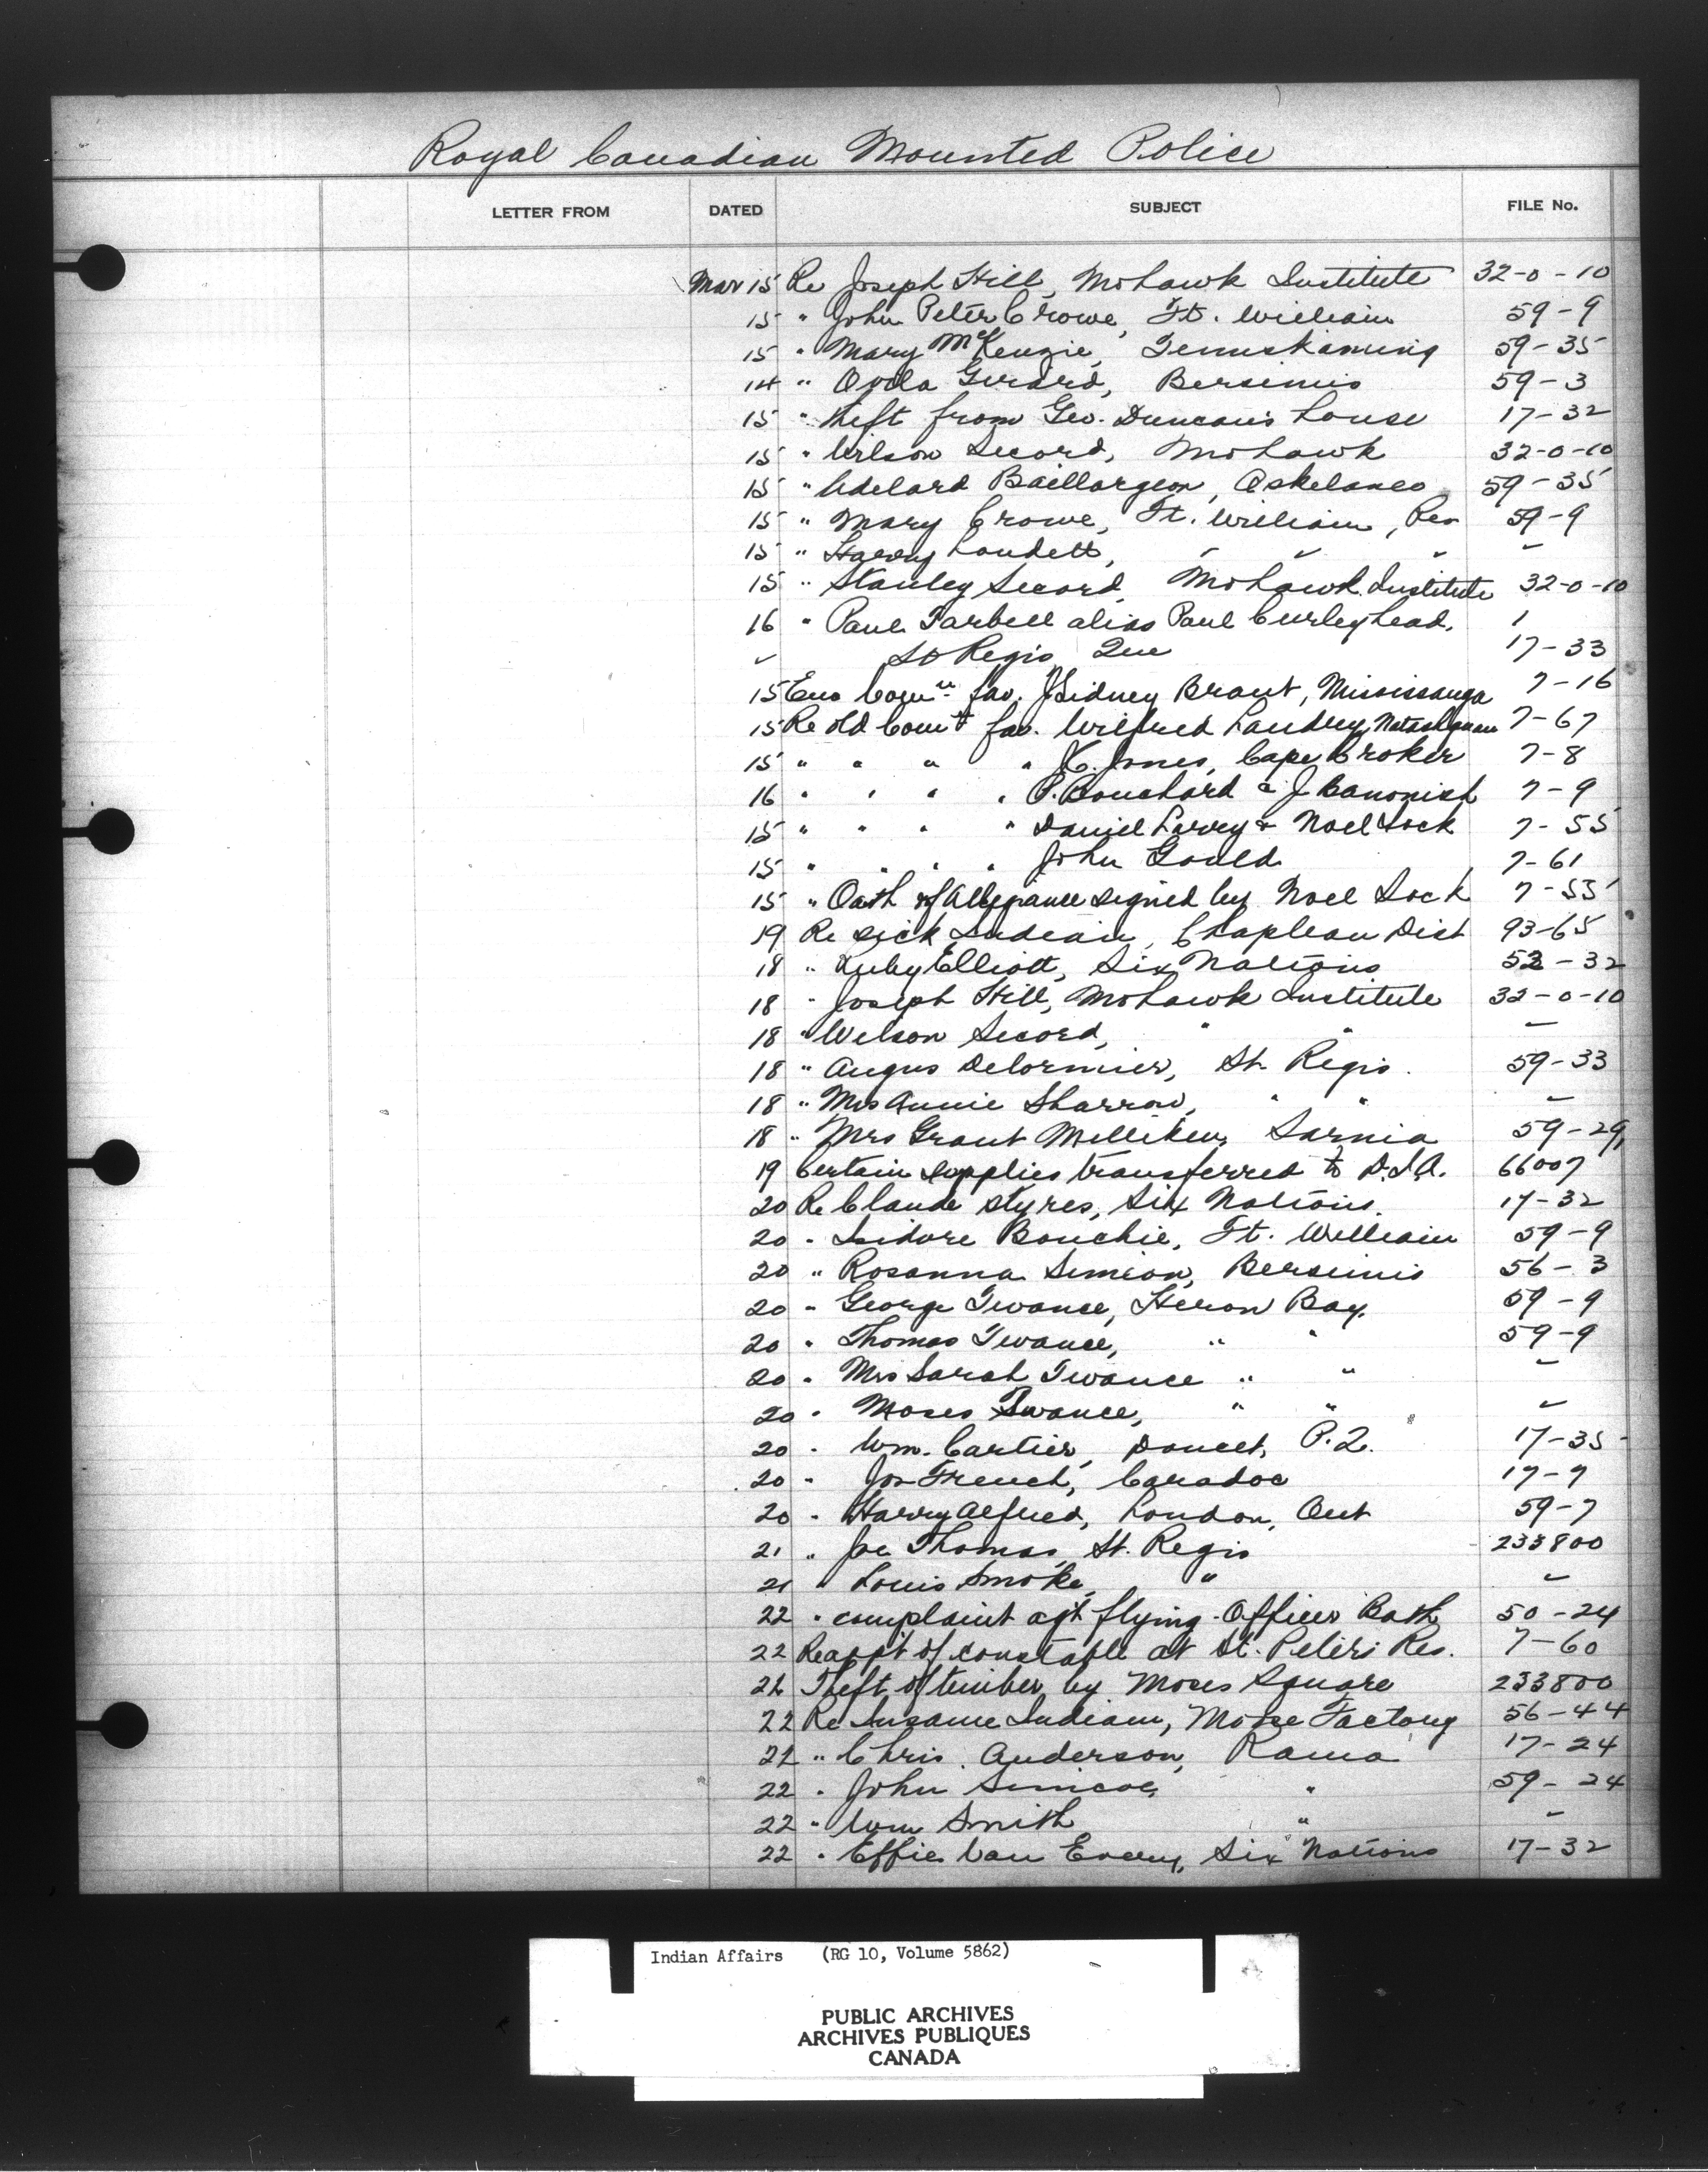 Royal Canadian Mounted Police
LETTER FROM DATED SUBJECT FILE No.
Mar 15 Re Joseph Hill, Mohawk Institute 32-0-10
15 " John Peter Crowe, Ft. William 59-9
15 " Mary McKenzie, Temiskaming 59-35
14 " Ovila Girard, Bersimis 59-3
15 " theft from Geo. Duncan's house 17-32
15 " Wilson Secord, Mohawk 32-0-10
15 " Adelard Baillargeon, Oskelaneo 59-35
15 " Mary Crowe, Ft. William, Res 59-9
15 " Harry Loudett, " " " "
15 " Stanley Secord, Mohawk Institute 32-0-10
16 " Paul Tarbell alias Paul Curleyhead, 1
" St Regis Que 17-33
15 Enc Comn fav. J Sidney Brant, Mississauga 7-16
15 Re old Comn fav. Wilfred Landry, Natashquan 7-67
15 " " " " K. Jones, Cape Croker 7-8
16 " " " " P. Bouchard & J Banonish 7-9
15 " " " " Daniel Larvey & Noel Sock 7-55
15 " " " " John Gould 7-61
15 " Oath of Allegiance signed by Noel Sock 7-55
19 Re sick Indian, Chapleau Dist 93-65
18 " Ruby Elliott, Six Nations 52-32
18 " Joseph Hill, Mohawk Institute 32-0-10
18 " Wilson Secord, " " "
18 " Angus Delormier, St. Regis. 59-33
18 " Mrs Annie Sharrow, " " "
18 " Mrs Grant Milliken, Sarnia 59-29
19 Certain supplies transferred to D.I.A. 66007
20 Re Claude Styres, Six Nations. 17-32
20 " Isidore Bouchie, Ft. William 59-9
20 " Rosanna Simeon, Bersimis 56-3
20 " George Twance, Heron Bay. 59-9
20 " Thomas Twance, " " 59-9
20 " Mrs Sarah Twance " " "
20 " Moses Twance, " " "
20 " Wm. Cartier, Doucet, P.Q. 17-35
20 " Jos French, Caradoc 17-7
20 " Harry Alfred, London, Ont 59-7
21 " Joe Thomas, St. Regis 233800
21 " Louis Smoke, " "
22 " complaint agt flying Officer Bath 50-24
22 Reappt of constable at St. Peters Res. 7-60
21 Theft of timber by Moses Square 233800
22 Re Insane Indian, Moose Factory 56-44
21 " Chris. Anderson, Rama 17-24
22 " John Simcoe, " 59-24
22 " Wm Smith " "
22 " Effie Van Every, Six Nations 17-32
Indian Affairs (RG 10, Volume 5862)
PUBLIC ARCHIVES
ARCHIVES PUBLIQUES
CANADA